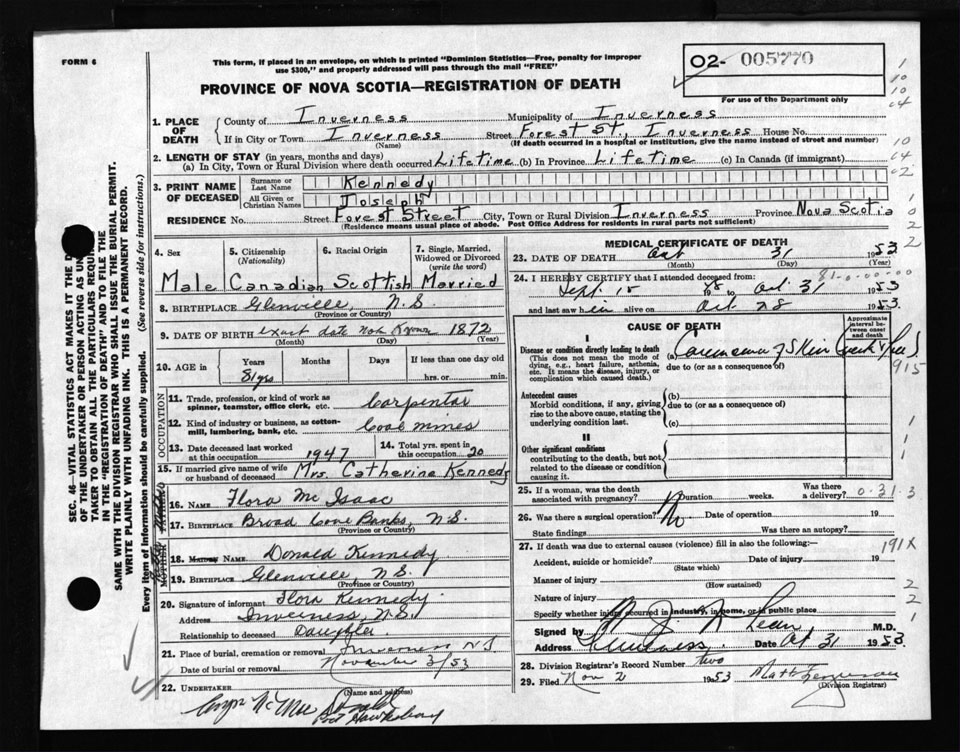 FORM 6
This form, if placed in an envelope, on which is printed "Dominion Statistics—Free, penalty for improper
use $300," and properly addressed will pass through the mail "FREE"
O2- 005770
For use of the Department only
PROVINCE OF NOVA SCOTIA—REGISTRATION OF DEATH
1. PLACE OF DEATH
County of Inverness Municipality of Inverness
If in City or Town Inverness Street Forest St., Inverness House No.
(Name) (If death occurred in a hospital or institution, give the name instead of street and number)
2. LENGTH OF STAY (in years, months and days)
(a) In City, Town or Rural Division where death occurred Lifetime (b) In Province Lifetime (c) In Canada (if immigrant)
3. PRINT NAME OF DECEASED
Surname or Last Name Kennedy
All Given or Christian Names Joseph
RESIDENCE No. Street Forest Street City, Town or Rural Division Inverness Province Nova Scotia
(Residence means usual place of abode. Post Office Address for residents in rural parts not sufficient)
4. Sex
Male
5. Citizenship (Nationality)
Canadian
6. Racial Origin
Scottish
7. Single, Married, Widowed or Divorced (write the word)
Married
8. BIRTHPLACE Glenville, N.S
(Province or Country)
9. DATE OF BIRTH exact date not known 1872
(Month) (Day) (Year)
10. AGE in
Years Months Days If less than one day old
81 yrs hrs. or min.
OCCUPATION
11. Trade, profession, or kind of work as spinner, teamster, office clerk, etc. Carpentar
12. Kind of industry or business, as cotton-mill, lumbering, bank, etc. Coal mines
13. Date deceased last worked at this occupation 1947
14. Total yrs. spent in this occupation 20
15. If married give name of wife or husband of deceased Mrs. Catherine Kennedy
16. NAME Flora Mc Isaac
17. BIRTHPLACE Broad Cove Banks, N.S.
(Province or Country)
MOTHER
18. MAIDEN NAME Donald Kennedy
19. BIRTHPLACE Glenville N.S.
(Province or Country)
20. Signature of informant Flora Kennedy
Address Inverness, N.S.
Relationship to deceased Daughter
21. Place of burial, cremation or removal Inverness N.S
Date of burial or removal November 3/53
22. UNDERTAKER
(Name and address)
MEDICAL CERTIFICATE OF DEATH
23. DATE OF DEATH Oct 31 1953
(Month) (Day) (Year)
24. I HEREBY CERTIFY that I attended deceased from
Sept. 15 to Oct 31 1953
and last saw h im alive on Oct 28 1953.
CAUSE OF DEATH
Approximate interval between onset and death
I
Disease or condition directly leading to death
(This does not mean the mode of dying, e.g., heart failure, asthenia, etc. It means the disease, injury, or complication which caused death.)
(a) Carcinoma of Skin
due to (or as a consequence of)
Antecedent causes
Morbid conditions, if any, giving rise to the above cause, stating the underlying condition last.
(b)
due to (or as a consequence of)
(c)
II
Other significant conditions
contributing to the death, but not related to the disease or condition causing it.
25. If a woman, was the death associated with pregnancy? Duration weeks. Was there a delivery?
26. Was there a surgical operation? No Date of operation 19
State findings Was there an autopsy?
27. If death was due to external causes (violence) fill in also the following:—
Accident, suicide or homicide? Date of injury 19
(State which)
Manner of injury
(How sustained)
Nature of injury
Specify whether injury occurred in industry, in home, or in public place
Signed by M.D.
Address Inverness Date Oct 31 1953.
28. Division Registrar's Record Number two
29. Filed Nov 2 1953 Matt Ferguson
(Division Registrar)
SEC. 46—VITAL STATISTICS ACT MAKES IT THE
OF THE UNDERTAKER OR PERSON ACTING AS
TAKER TO OBTAIN ALL THE PARTICULARS
IN THE "REGISTRATION OF DEATH" AND TO FILE THE
SAME WITH THE DIVISION REGISTRAR WHO SHALL ISSUE THE BURIAL PERMIT.
WRITE PLAINLY WITH UNFADING INK. THIS IS A PERMANENT RECORD.
Every item of information should be carefully supplied. (See reverse side for instructions.)